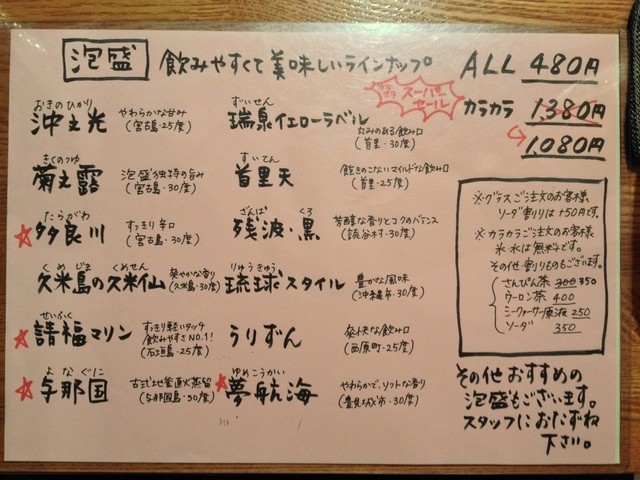 泡盛 飲みやすくて美味しいラインナップ。 ALL 480円
カラカラ スーパーセール
カラカラ 1,380円
1,080円
おきのひかり
沖之光 やわらかな甘み
(宮古島・25度)
きくのつゆ
菊之露 泡盛独特の旨み
(宮古島・30度)
たらがわ
多良川 すっきり辛口
(宮古島・30度)
くめじま くめせん
久米島の久米仙 爽やかな香り
(久米島・30度)
せいふく
請福マリン すっきり軽いタッチ
飲みやすさNO.1!
(石垣島・25度)
よなぐに
与那国 古式地釜直火蒸留
(与那国島・30度)
ずいせん
瑞泉イエローラベル
丸みのある飲み口
(首里・30度)
すいてん
首里天 飽きのこないマイルドな飲み口
(首里・25度)
ざんぱ くろ
残波・黒 芳醇な香りとコクのバランス
(読谷村・30度)
りゅうきゅう
琉球スタイル 豊かな風味
(沖縄市・30度)
うりずん 爽快な飲み口
(西原町・25度)
ゆめこうかい
夢航海 やわらかで、ソフトな香り
(豊見城市・30度)
※グラスご注文のお客様
ソーダ割りは+50円です。
※カラカラご注文のお客様
氷・水は無料です。
その他・割りものもございます。
さんぴん茶 300 350
ウーロン茶 400
シークヮーサー原液 250
ソーダ 350
その他おすすめの
泡盛もございます。
スタッフにおたずね
下さい。